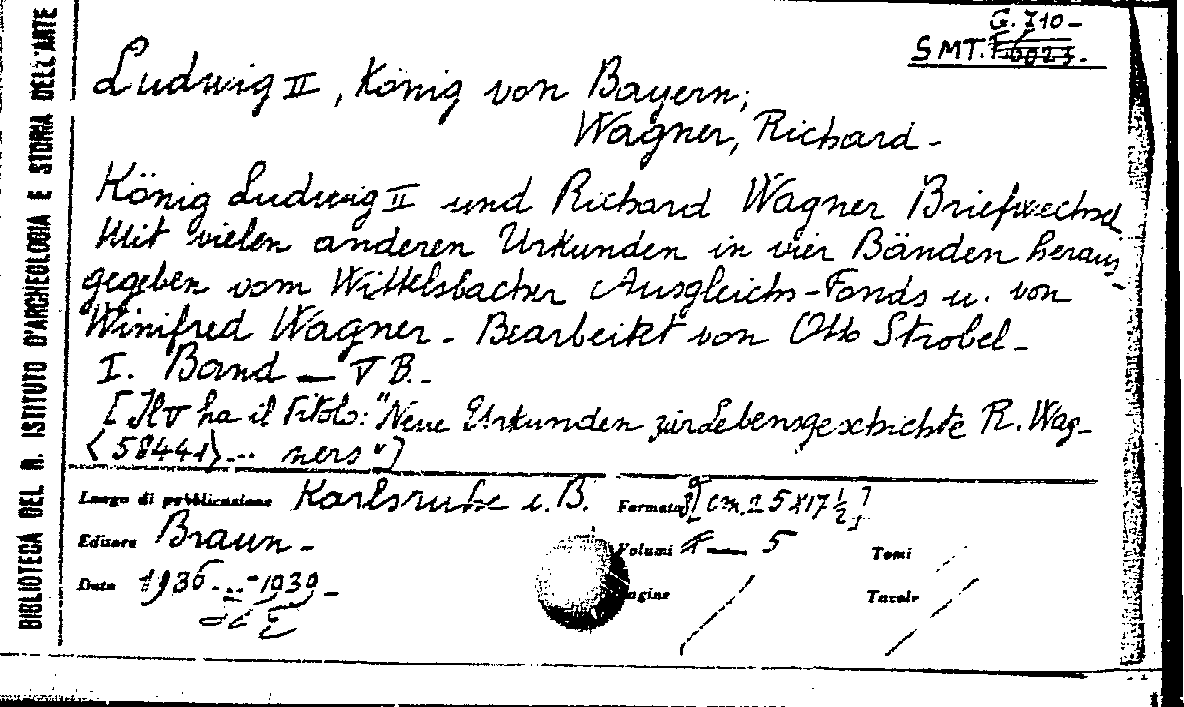 BIBLIOTECA DEL R. ISTITUTO D'ARCHEOLOGIA E STORIA DELL'ARTE
G. 710-
SMT. F 6023.
Ludwig II, König von Bayern;
Wagner, Richard-
König Ludwig II und Richard Wagner Briefwechsel
Mit vielen anderen Urkunden in vier Bänden heraus-
gegeben vom Wittelsbacher Ausgleichs-Fonds u. von
Winifred Wagner- Bearbeitet von Otto Strobel-
I. Band — V B.-
[Il V ha il titolo: "Neue Urkunden zur Lebensgeschichte R. Wag-
<58441>... ners"]
Luogo di pubblicazione Karlsruhe i. B. Formato 8 [cm. 25x17 ½]
Editore Braun- Volumi 5 Tomi
Data 1936...-1939- Pagine Tavole